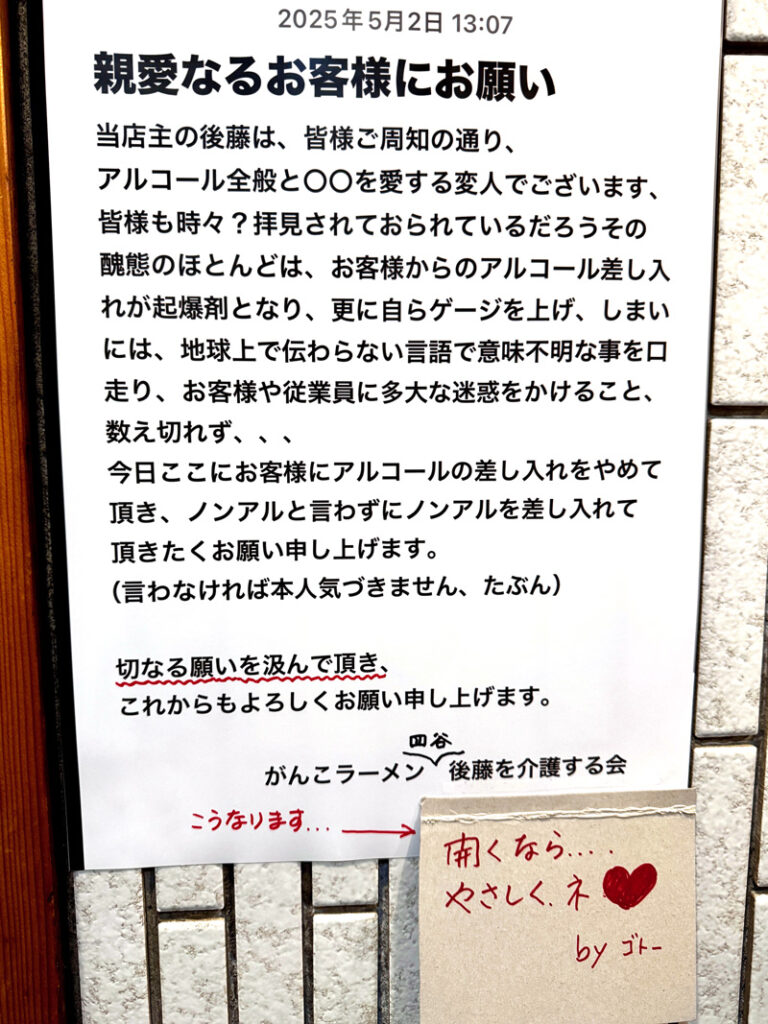 2025年5月2日 13:07
親愛なるお客様にお願い
当店主の後藤は、皆様ご周知の通り、
アルコール全般と〇〇を愛する変人でございます、
皆様も時々？拝見されておられているだろうその
醜態のほとんどは、お客様からのアルコール差し入
れが起爆剤となり、更に自らゲージを上げ、しまい
には、地球上で伝わらない言語で意味不明な事を口
走り、お客様や従業員に多大な迷惑をかけること、
数え切れず、、、
今日ここにお客様にアルコールの差し入れをやめて
頂き、ノンアルと言わずにノンアルを差し入れて
頂きたくお願い申し上げます。
（言わなければ本人気づきません、たぶん）
切なる願いを汲んで頂き、
これからもよろしくお願い申し上げます。
四谷
がんこラーメン 後藤を介護する会
こうなります...
開くなら.....
やさしく、ネ
by ゴトー